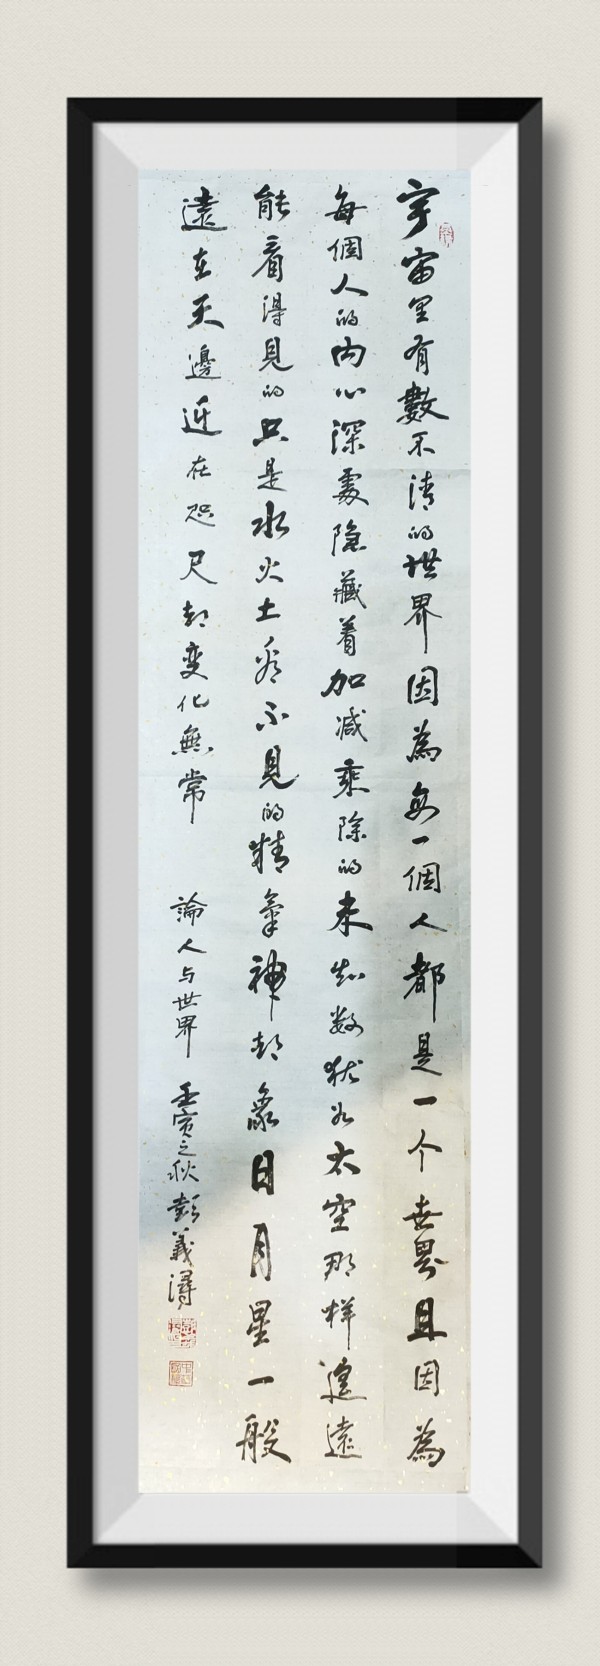 宇宙里有數不清的世界因為每一個人都是一个世界且因為
每個人的内心深處隐藏着加减乘除的未知數犹如太空那样遥遠
能看得見的只是水火土看不見的精氣神却象日月星一般
遠在天邊近在咫尺却变化無常
論人与世界
壬寅之秋彭義濤